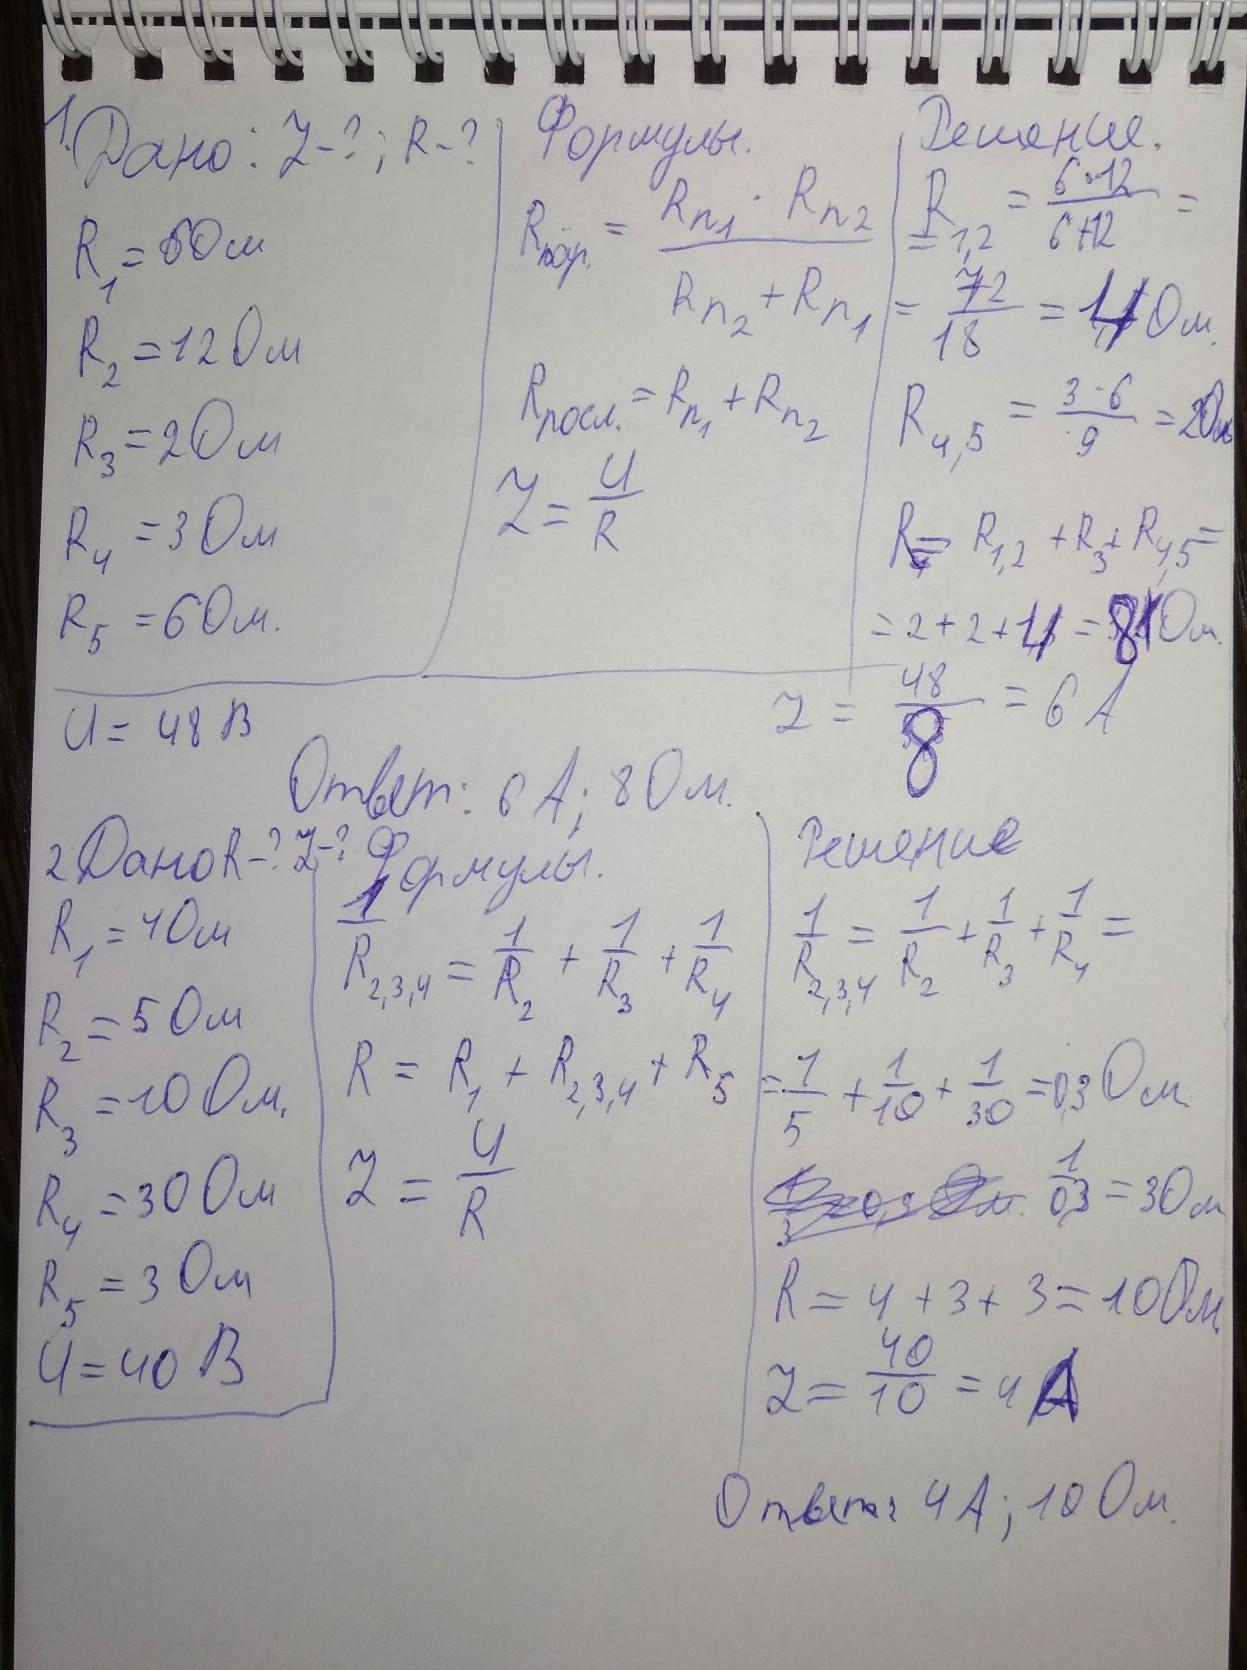 1. Дано: I-?; R-?
R₁ = 6 Ом
R₂ = 12 Ом
R₃ = 2 Ом
R₄ = 3 Ом
R₅ = 6 Ом.
U = 48 В
Формулы.
Rпар. = (Rn₁ · Rn₂) / (Rn₂ + Rn₁)
Rпосл. = Rn₁ + Rn₂
I = U/R
Решение.
R₁,₂ = (6·12)/(6+12) =
= 72/18 = 4 Ом.
R₄,₅ = (3·6)/9 = 2 Ом
R = R₁,₂ + R₃ + R₄,₅ =
= 2 + 2 + 4 = 8 Ом.
I = 48/8 = 6 А
Ответ: 6 А; 8 Ом.
2 Дано R-? I-?
R₁ = 4 Ом
R₂ = 5 Ом
R₃ = 10 Ом.
R₄ = 30 Ом
R₅ = 3 Ом
U = 40 В
Формулы.
1/R₂,₃,₄ = 1/R₂ + 1/R₃ + 1/R₄
R = R₁ + R₂,₃,₄ + R₅
I = U/R
Решение
1/R₂,₃,₄ = 1/R₂ + 1/R₃ + 1/R₄ =
= 1/5 + 1/10 + 1/30 = 0,3 Ом.
1/0,3 = 3 Ом
R = 4 + 3 + 3 = 10 Ом.
I = 40/10 = 4 А
Ответ: 4 А; 10 Ом.